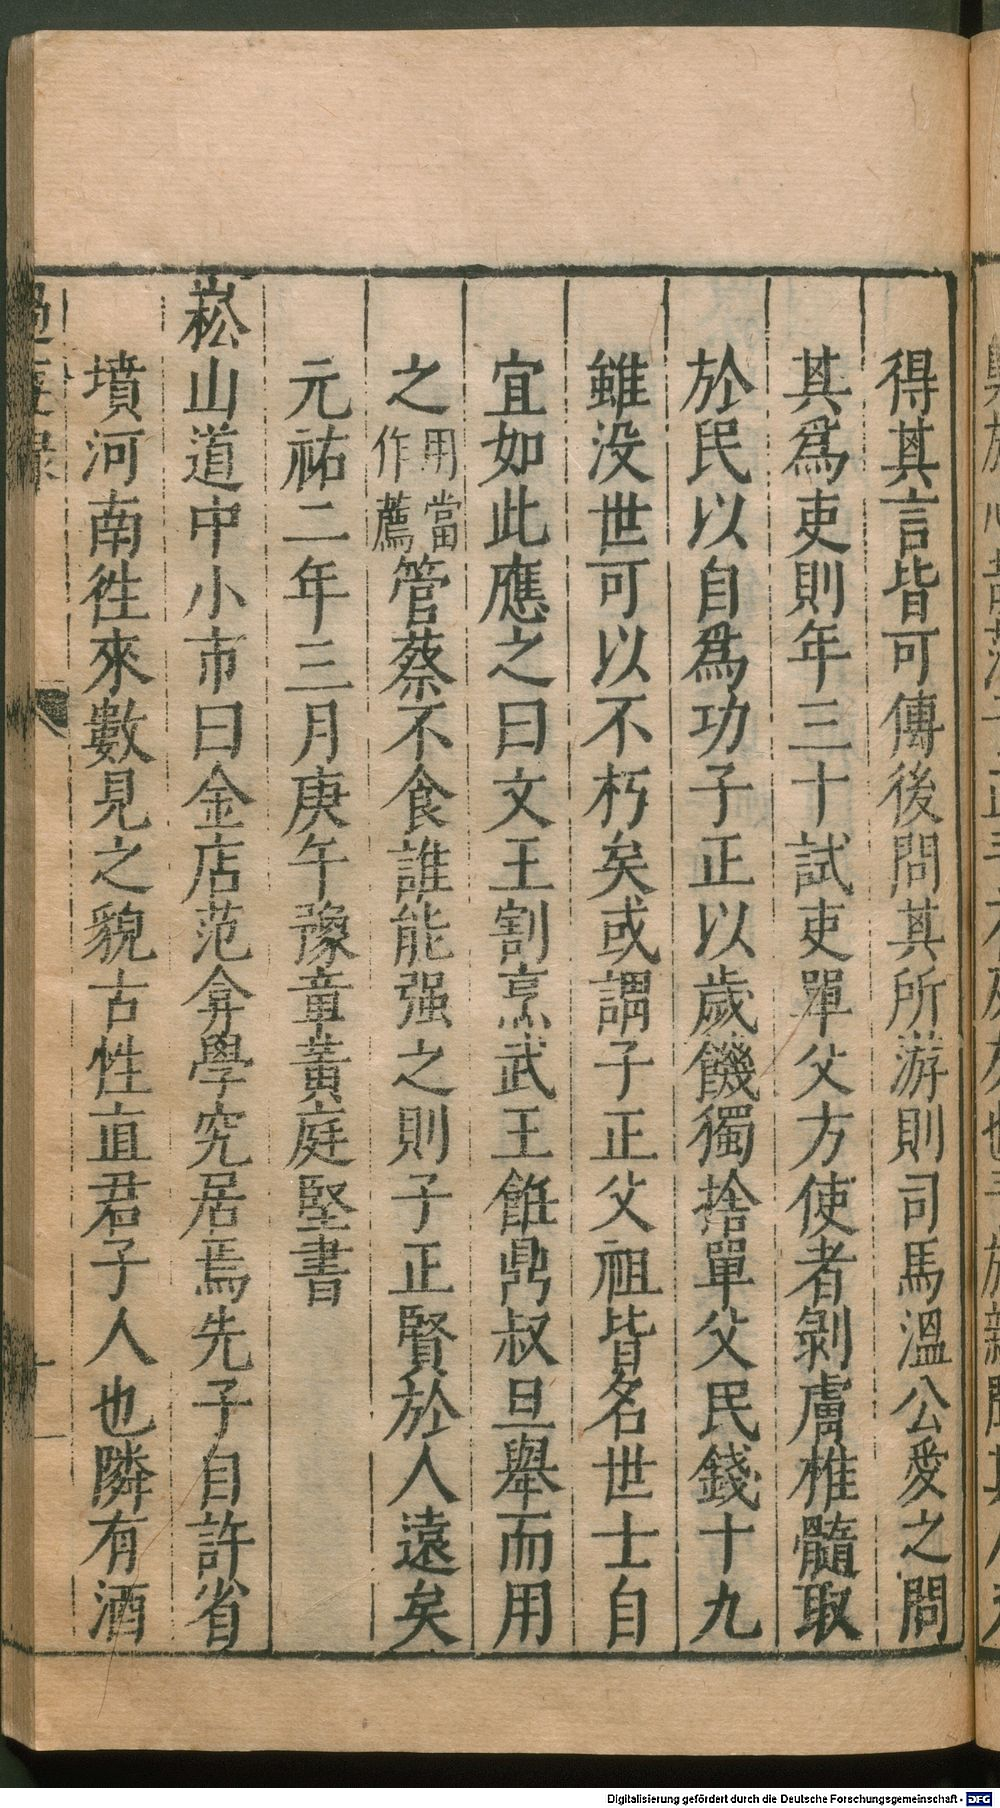 得其言皆可傳後問其所游則司馬溫公愛之問
其爲吏則年三十試吏單父方使者剝膚椎髓取
於民以自爲功子正以歲饑獨捨單父民錢十九
雖没世可以不朽矣或謂子正父祖皆名世士自
宜如此應之曰文王割烹武王飪鼎叔旦舉而用
之用當作薦管蔡不食誰能强之則子正賢於人遠矣
元祐二年三月庚午豫章黃庭堅書
崧山道中小市曰金店范弇學究居焉先子自許省
墳河南徃來數見之貌古性直君子人也隣有酒
過庭錄
十
Digitalisierung gefördert durch die Deutsche Forschungsgemeinschaft - DFG